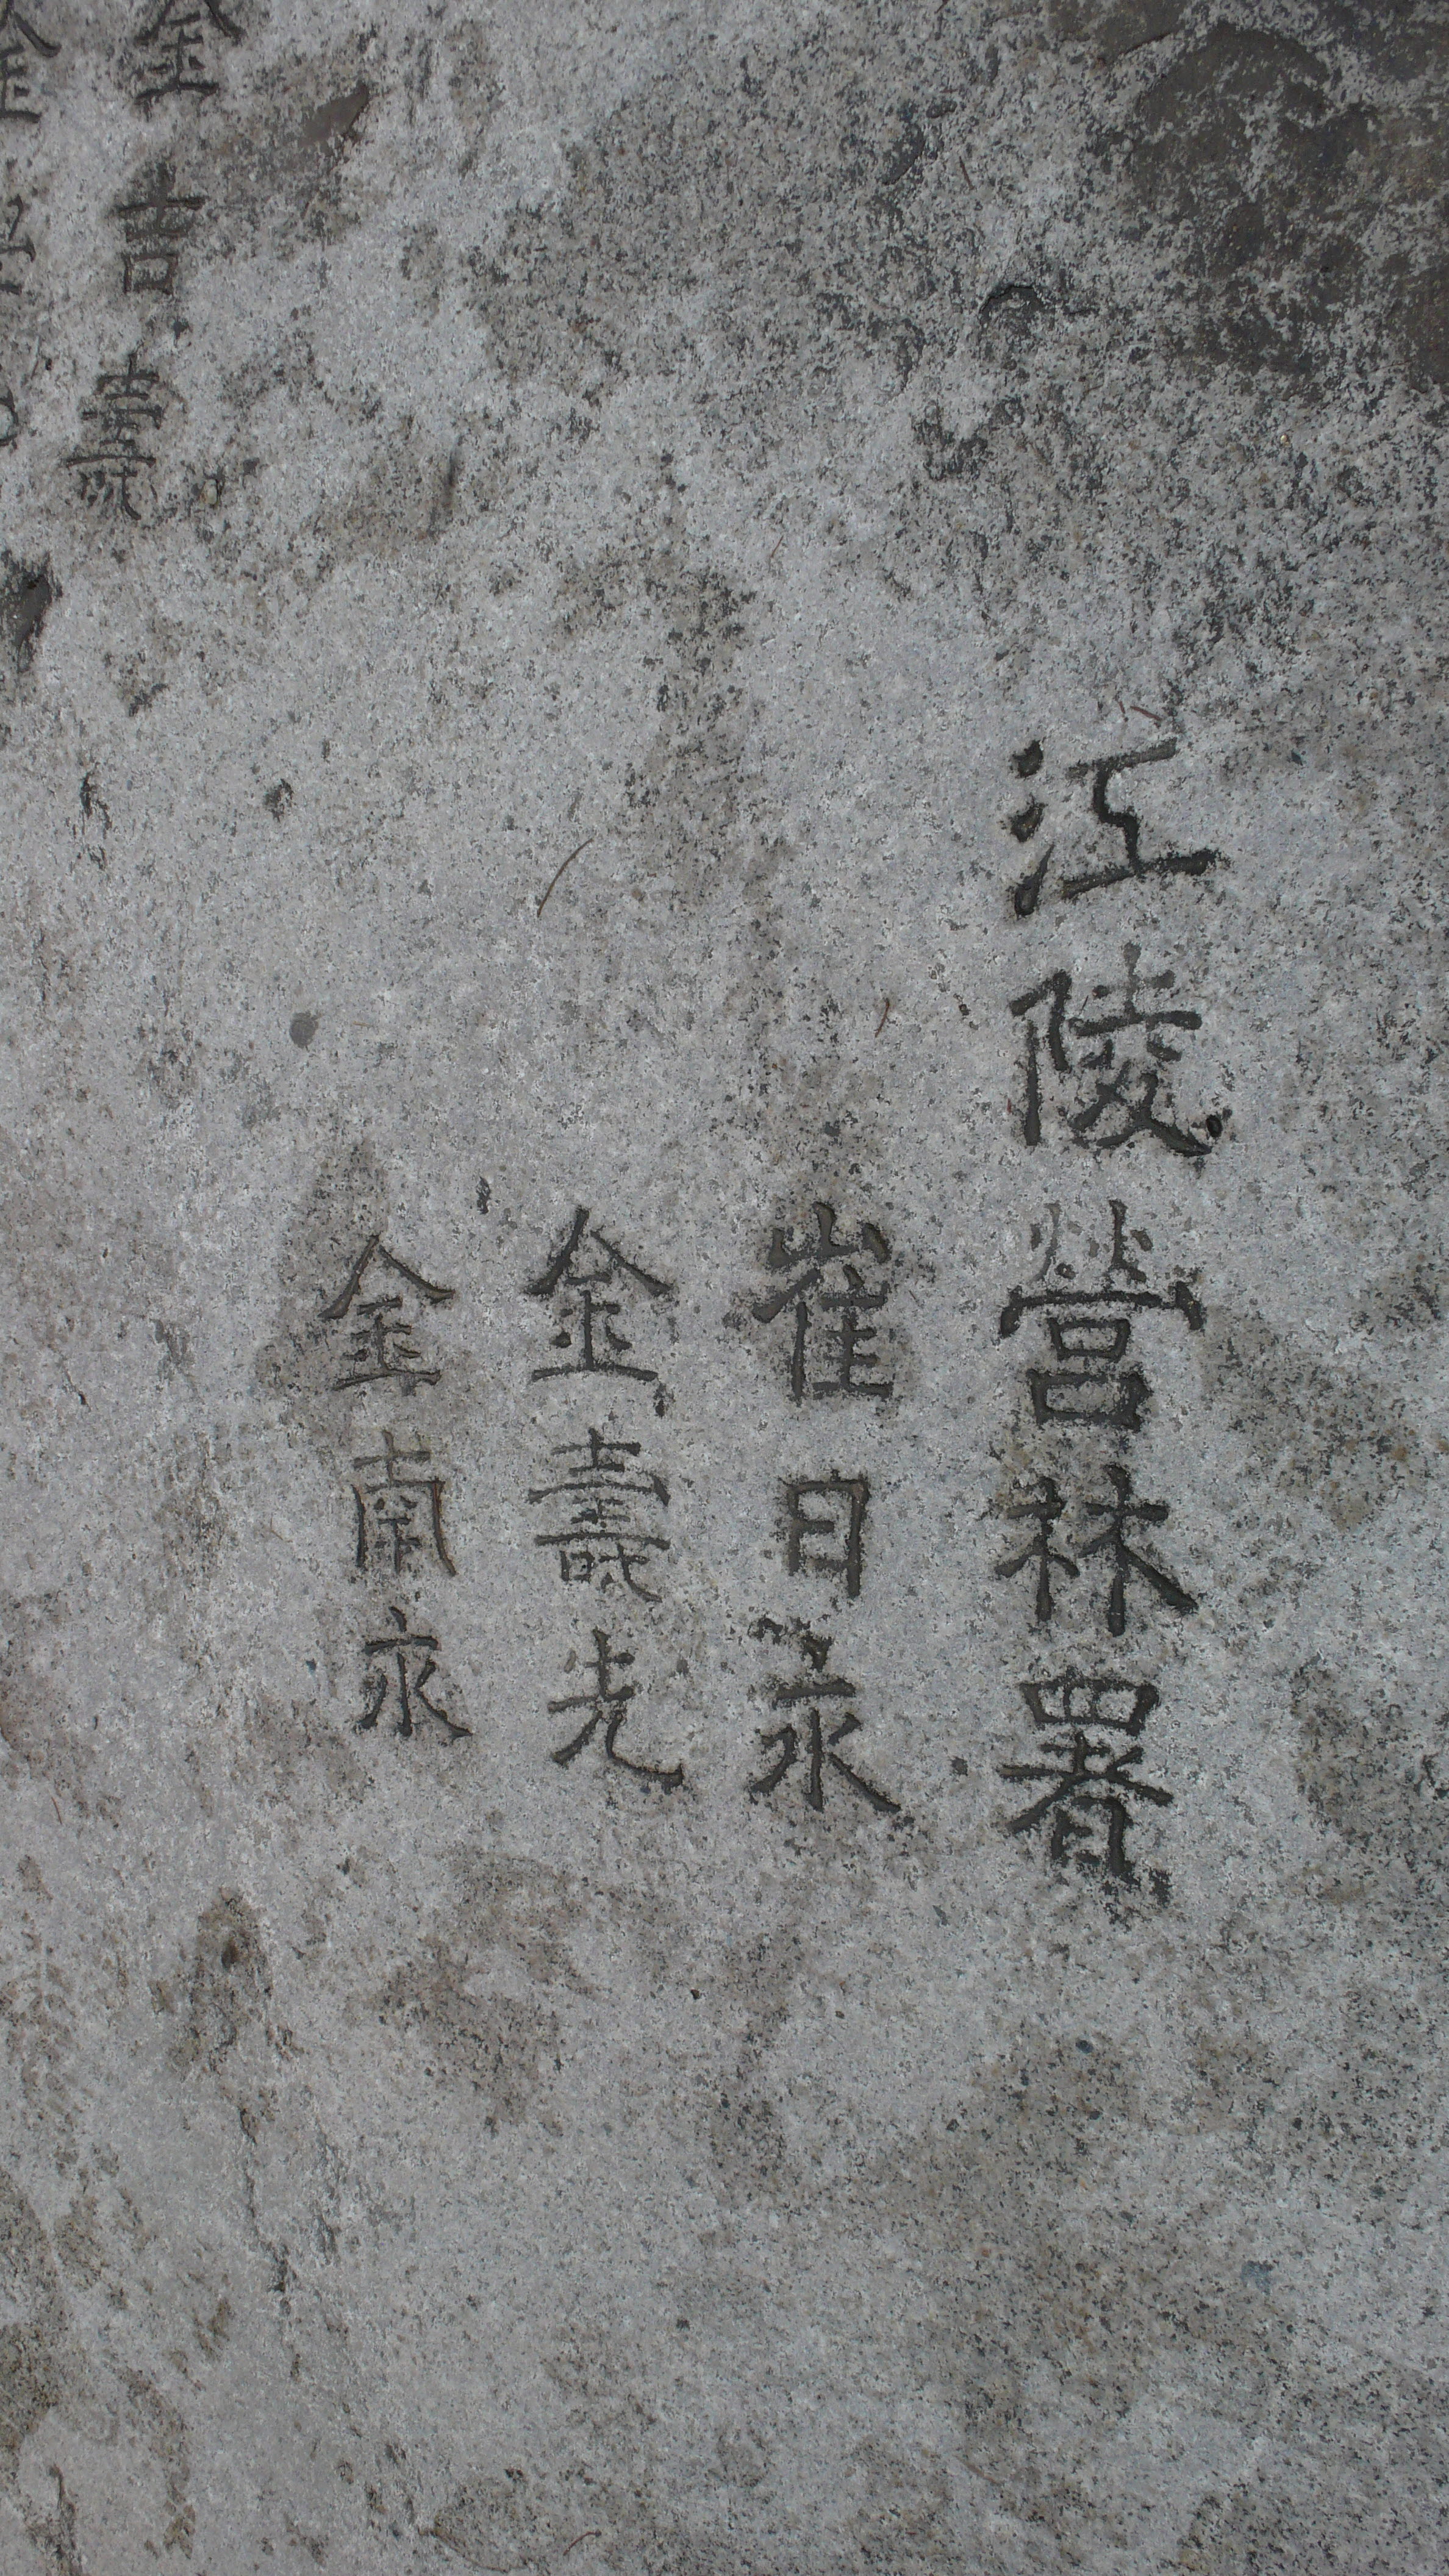 江陵營林署
崔日永
金壽光
金南永
金吉壽
金